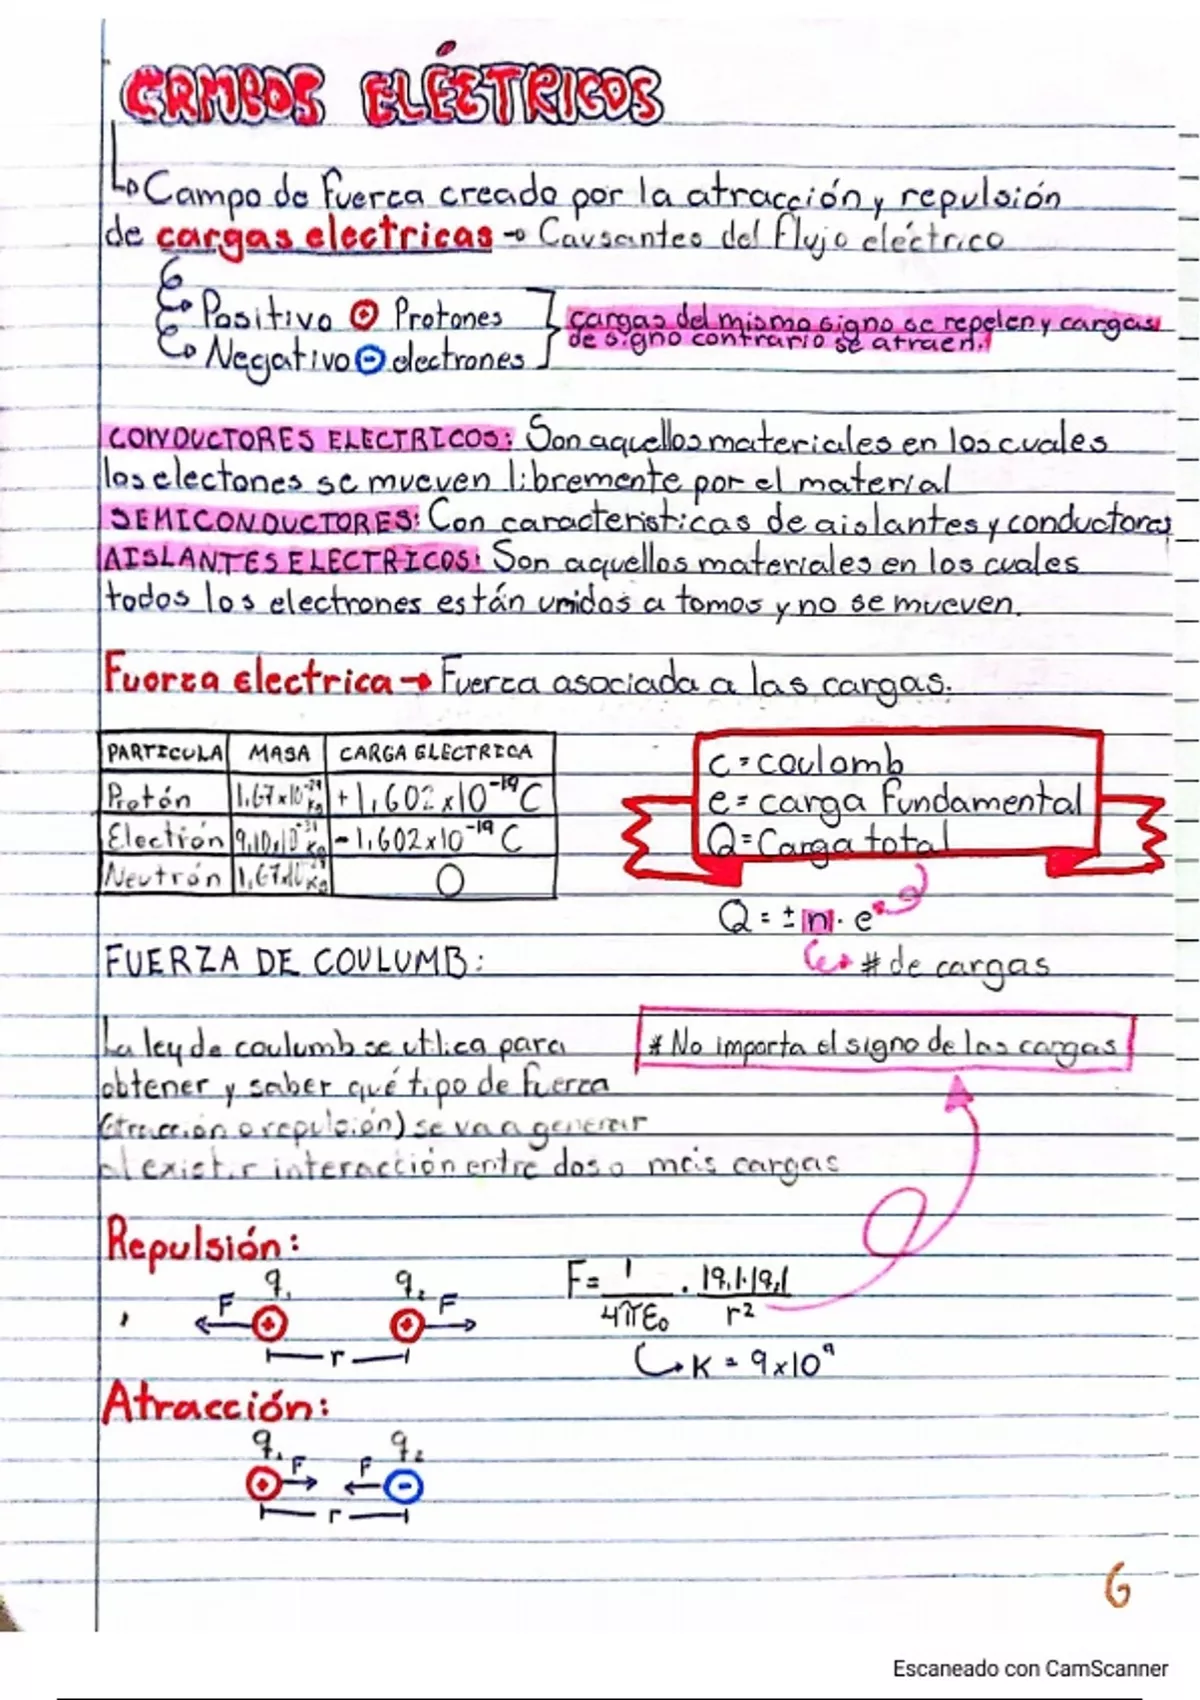 CAMPOS ELÉCTRICOS
Campo de fuerza creado por la atracción y repulsión
de cargas electricas → Causantes del flujo eléctrico
Positivo + Protones
Negativo - electrones
cargas del mismo signo se repelen y cargas
de signo contrario se atraen.
CONDUCTORES ELECTRICOS: Son aquellos materiales en los cuales
los electones se mueven libremente por el material
SEMICONDUCTORES: Con caracteristicas de aislantes y conductores
AISLANTES ELECTRICOS: Son aquellos materiales en los cuales
todos los electrones están unidos a tomos y no se mueven.
Fuerza electrica → Fuerza asociada a las cargas.
PARTICULA MASA CARGA ELECTRICA
Protón 1,67x10 Kg +1,602x10⁻¹⁹ C
Electrón 9,10x10⁻³¹ Kg -1,602x10⁻¹⁹ C
Neutrón 1,67x10 Kg 0
c = coulomb
e = carga fundamental
Q = Carga total
Q = ± n · e
# de cargas
FUERZA DE COULUMB:
La ley de coulumb se utlica para
obtener y saber qué tipo de fuerza
(atracción o repulsión) se va a generar
al existir interacción entre dos o más cargas
* No importa el signo de las cargas
Repulsión:
q₁ q₂
F + + F
r
F = 1/4πε₀ · |q₁|·|q₂|/r²
K = 9x10⁹
Atracción:
q₁ q₂
+ F F -
r
6
Escaneado con CamScanner